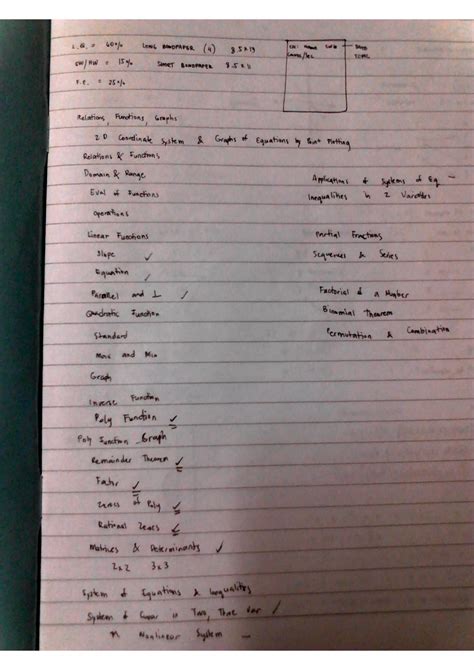 L.Q. = 60% LONG BONDPAPER (4) 8.5 x 13
SW/HW = 15% SHORT BONDPAPER 8.5 x 11
F.E. = 25%
Relations, Functions, Graphs
2-D Coordinate System & Graphs of Equations by Point Plotting
Relations & Functions
Domain & Range
Eval of Functions
Operations
Linear Functions
Slope ✓
Equation ✓
Parallel and ⊥ ✓
Quadratic Function
Standard
Max and Min
Graph
Inverse Function
Poly Function ✓
Poly Function Graph
Remainder Theorem ✓
Factor ✓
Zeroes of Poly ✓
Rational Zeroes ✓
Matrices & Determinants ✓
2x2 3x3
System of Equations & Inequalities
System of Linear in Two, Three Var ✓
Nonlinear System –
Applications of Systems of Eq –
Inequalities in 2 Variables
Partial Fractions
Sequences & Series
Factorial of a Number
Binomial Theorem
Permutation & Combination